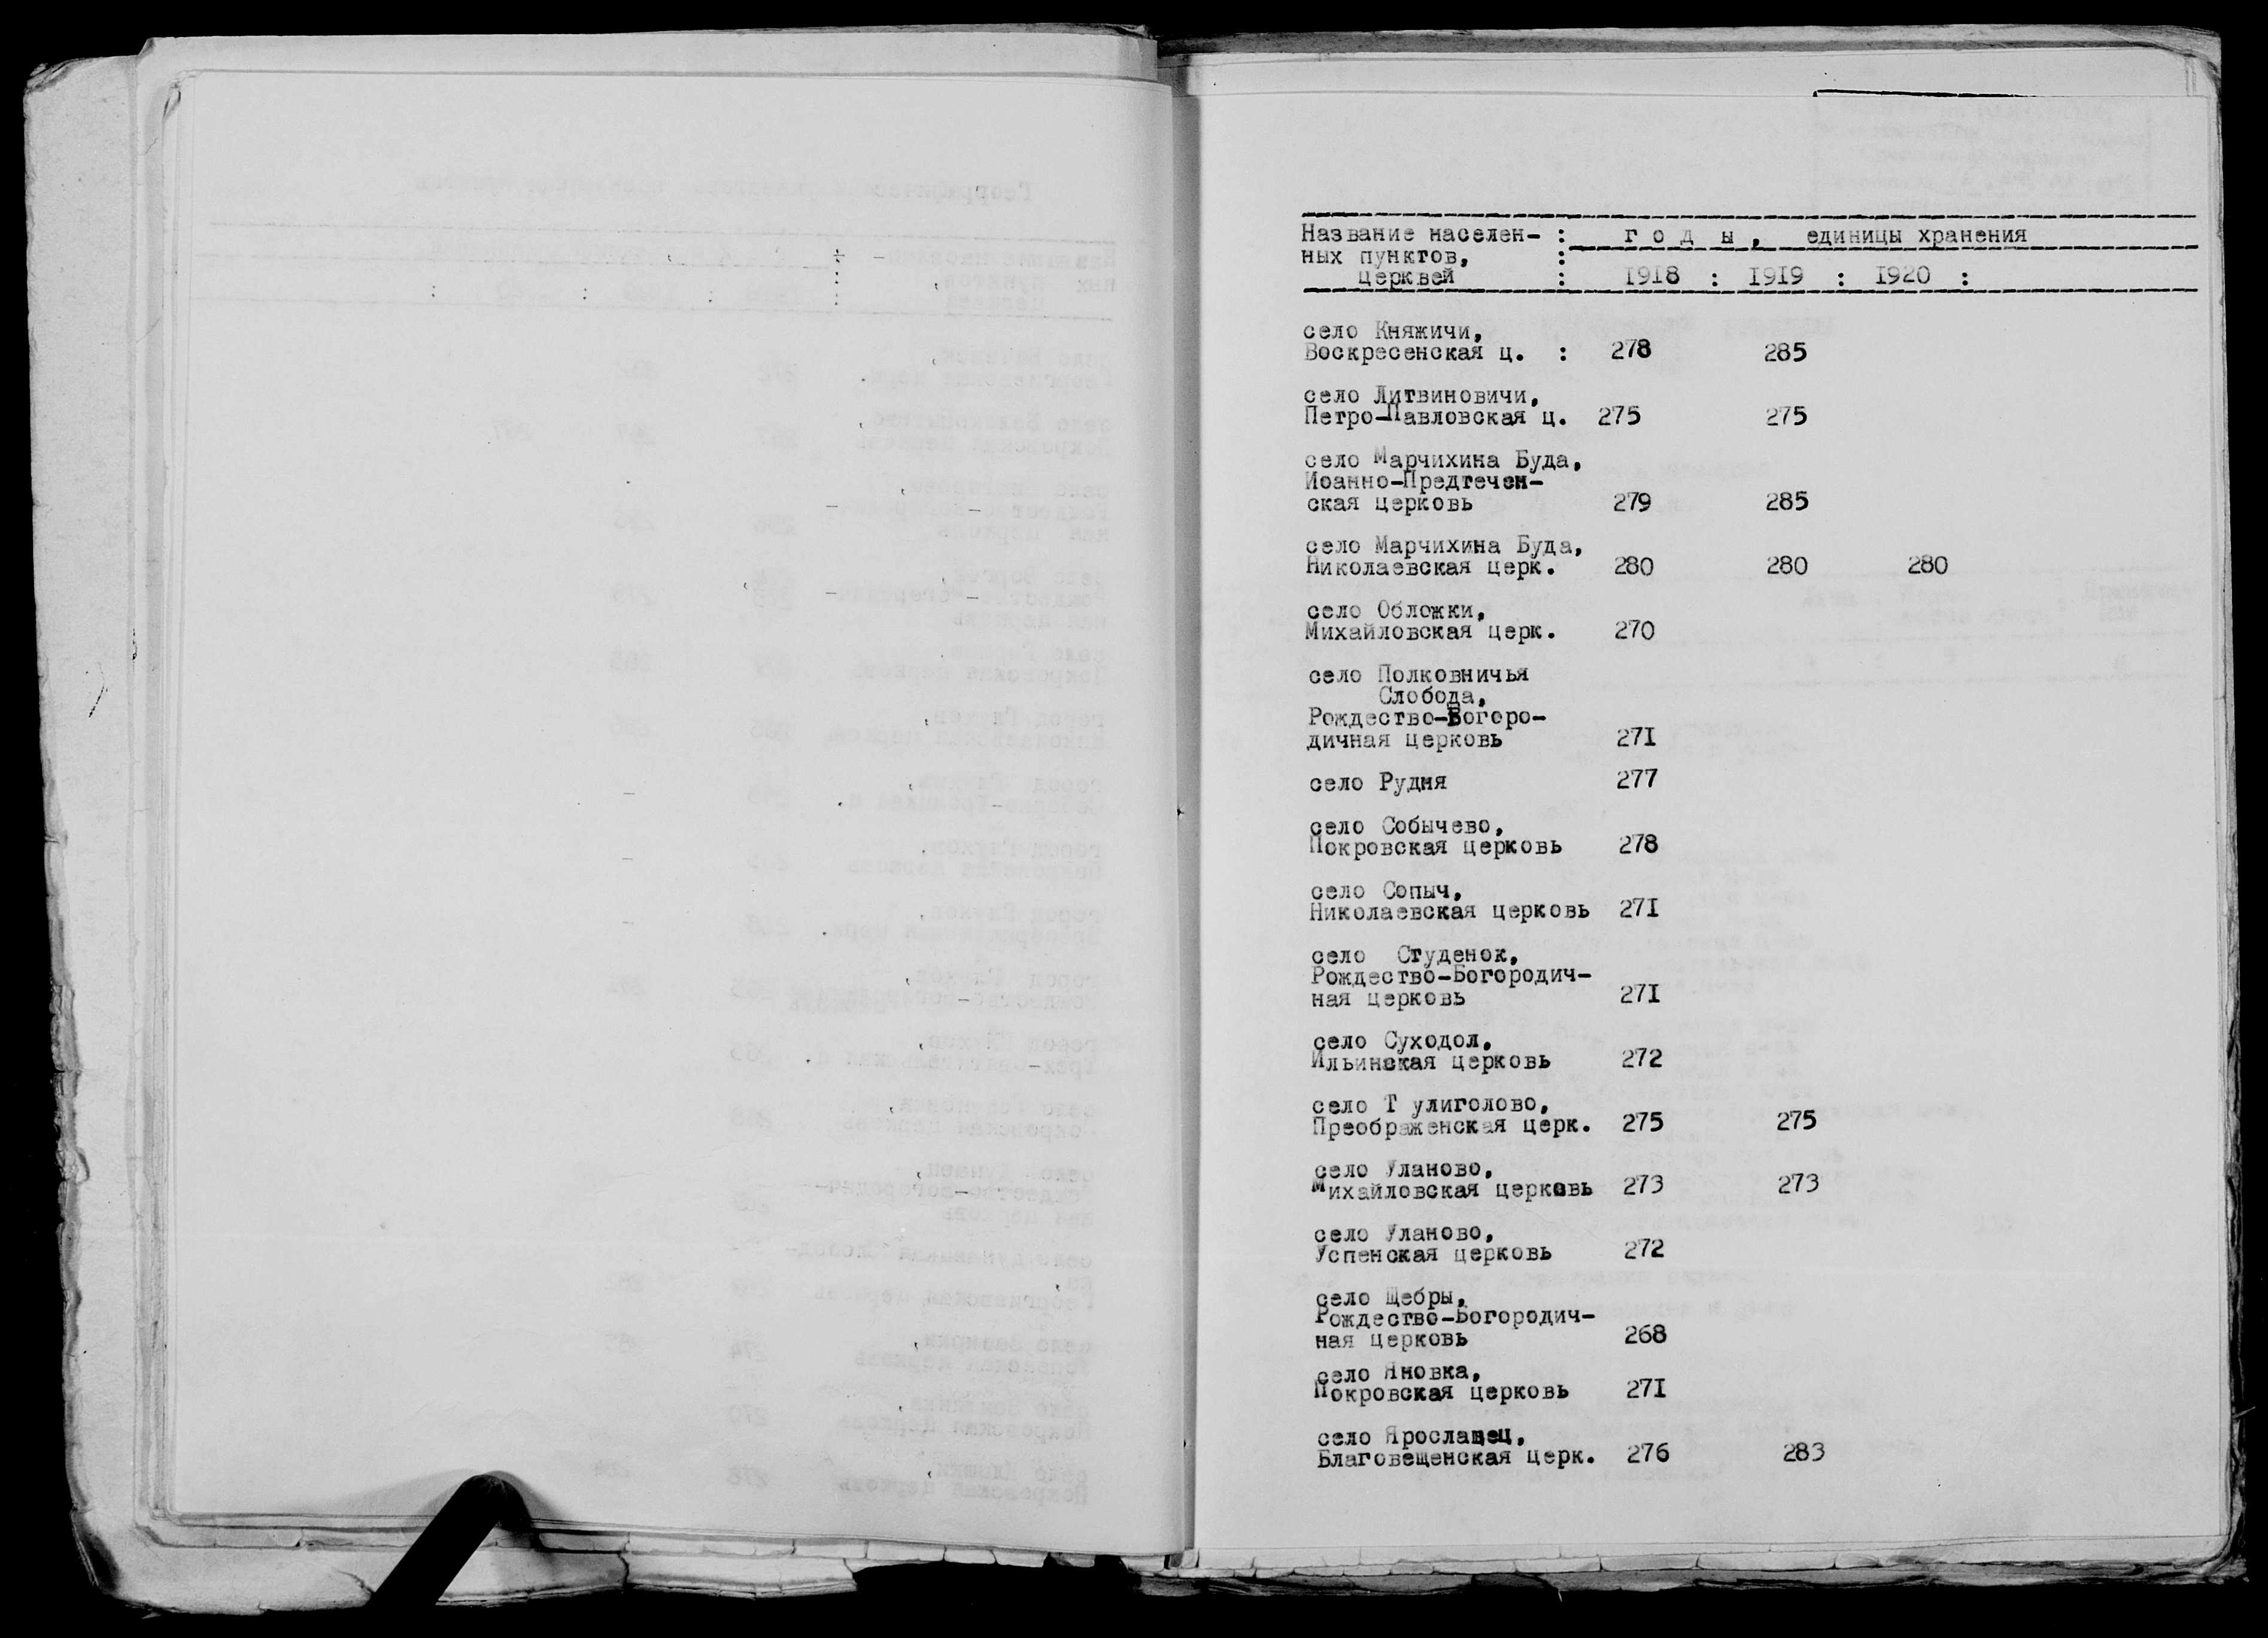 Название населен- : г о д ы , единицы хранения
ных пунктов, :
церквей : 1918 : 1919 : 1920 :
село Княжичи,
Воскресенская ц. : 278 285
село Литвиновичи,
Петро-Павловская ц. 275 275
село Марчихина Буда,
Иоанно-Предтечен-
ская церковь 279 285
село Марчихина Буда,
Николаевская церк. 280 280 280
село Обложки,
Михайловская церк. 270
село Полковничья
Слобода,
Рождество-Богоро-
дичная церковь 271
село Рудня 277
село Собычево,
Покровская церковь 278
село Сопыч,
Николаевская церковь 271
село Студенок,
Рождество-Богородич-
ная церковь 271
село Суходол,
Ильинская церковь 272
село Т улиголово,
Преображенская церк. 275 275
село Уланово,
Михайловская церковь 273 273
село Уланово,
Успенская церковь 272
село Щебры,
Рождество-Богородич-
ная церковь 268
село Яновка,
Покровская церковь 271
село Ярославец,
Благовещенская церк. 276 283